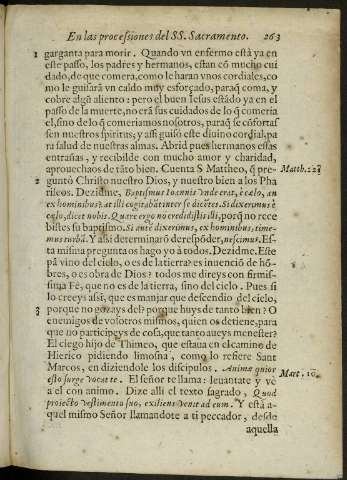 En las processiones del SS. Sacramento. 263
1 garganta para morir. Quando vn enfermo està ya en
este passo, los padres y hermanos, estan cō mucho cui
dado, de que comera, como le haran vnos cordiales, co
mo le guisarà vn caldo muy esforçado, paraq̃ coma, y
cobre algũ aliento: pero el buen Iesus estādo ya en el
passo de la muerte, no erā sus cuidados de lo q̃ comeria
el, sino de lo q̃ comeriamos nosotros, paraq̃ se cōfortas
sen nuestros spiritus; y assi guisò este diuino cordial, pa
ra salud de nuestras almas. Abrid pues hermanos essas
entrañas, y recibilde con mucho amor y charidad,
aprouechaos de tāto bien. Cuenta S. Mattheo, q̃ pre- Matth. 22.
2 guntò Christo nuestro Dios, y nuestro bien a los Pha
riseos. Dezidme, Baptismus Ioannis vnde erat, è cælo, an
ex hominibus? at illi cogitabāt inter se dicētes. Si dixerimus è
cælo, dicet nobis. Quare ergo non credidistis illi, porq̃ no rece
bistes su baptismo. Si autē dixerimus, ex hominibus, time-
mus turbā. Y assi determinarō derespōder, nescimus. Es-
ta misma pregunta os hago yo à todos. Dezidme. Este
pā vino del cielo, o es de la tierra? es inuenciō de hō-
bres, o es obra de Dios? todos me direys con firmis-
sima Fè, que no es de la tierra, sino del cielo. Pues si
lo creeys assi, que es manjar que descendio del cielo,
3 porque no gozays del? porque huys de tanto bien? O
enemigos de vosotros mismos, quien os detiene, para
que no participeys de cosa, que tanto aueys menester?
El ciego hijo de Thimeo, que estaua en el camino de
Hierico pidiendo limosna, como lo refiere Sant
Marcos, en diziendole los discipulos. Animæquior
esto surge vocat te. El señor te llama: leuantate y vè Mart. 10.
a el con animo. Dize alli el texto sagrado, Quod
proiecto vestimento suo, exiliens venit ad eum. Y està a-
quel mismo Señor llamandote a ti peccador, desde
aquella